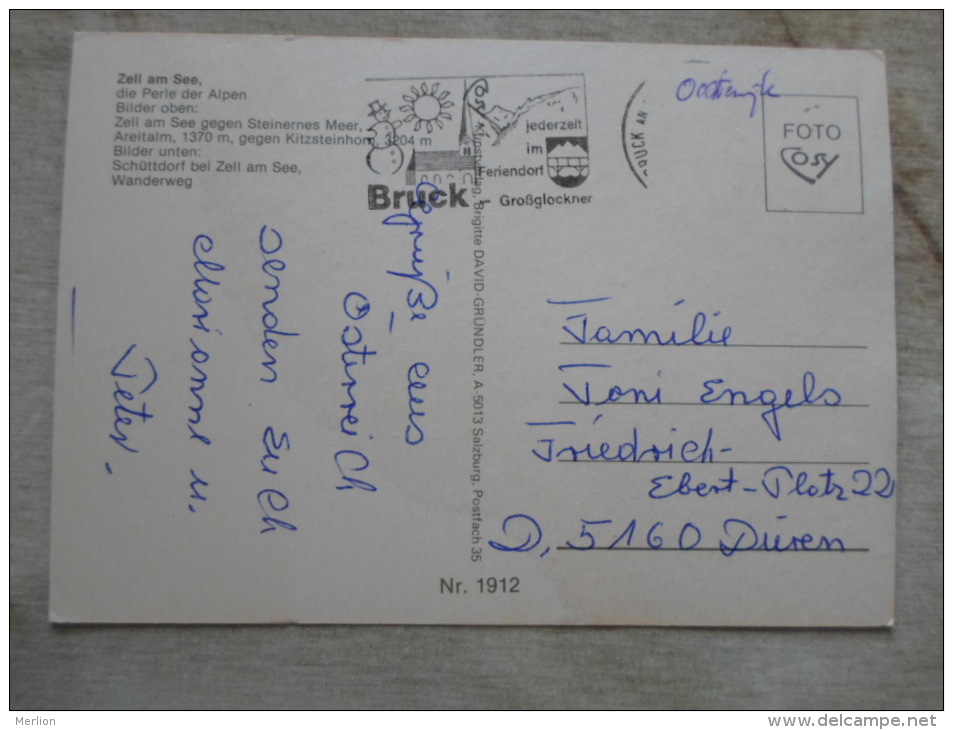 Zell am See,
die Perle der Alpen
Bilder oben:
Zell am See gegen Steinernes Meer,
Areitalm, 1370 m, gegen Kitzsteinhorn, 3204 m
Bilder unten:
Schüttdorf bei Zell am See,
Wanderweg
jederzeit
im
Feriendorf
Bruck
Großglockner
BRUCK AN
FOTO
COSY
Kunstverlag Brigitte DAVID-GRÜNDLER, A-5013 Salzburg, Postfach 35
Grüße aus
Österreich
senden Euch
Marianne u.
Peter.
Familie
Toni Engels
Friedrich-
Ebert-Platz 22
D, 5160 Düren
Nr. 1912
Merlion
http://www.delcampe.net